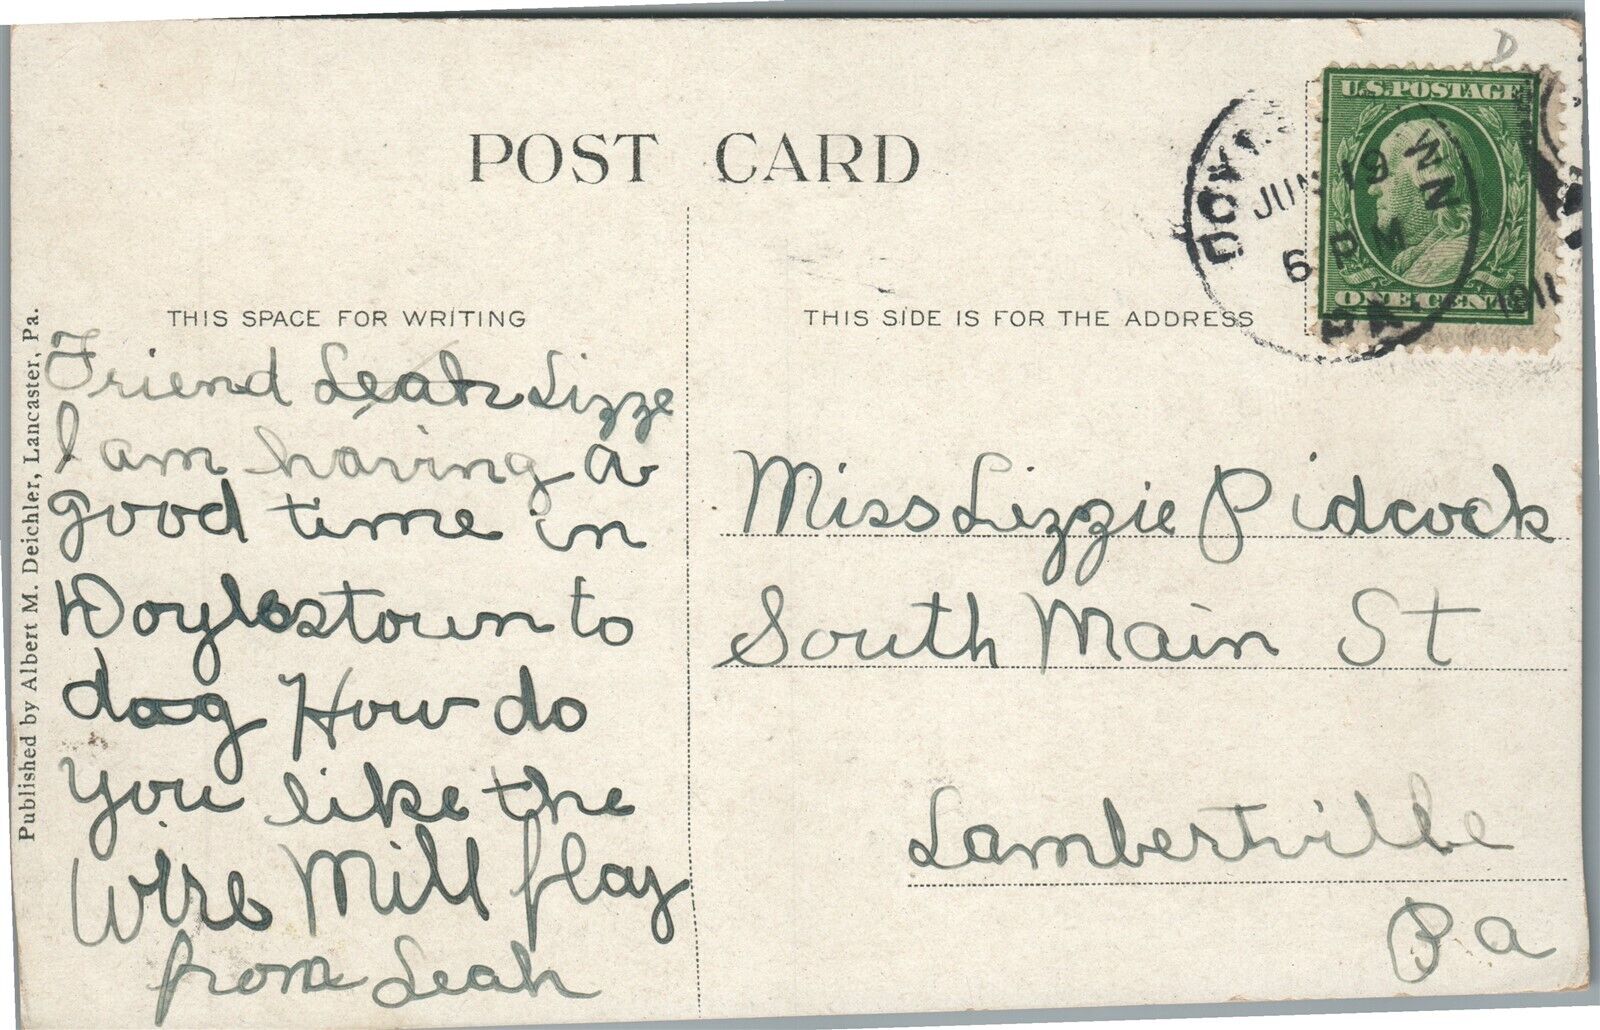 POST CARD
THIS SPACE FOR WRITING
THIS SIDE IS FOR THE ADDRESS
Published by Albert M. Deichler, Lancaster, Pa.
Friend Leah Lizze
I am having a
good time in
Doylestown to
day How do
you like the
Wire Mill flag
from Leah
Miss Lizzie Pidcock
South Main St
Lambertville
Pa
U.S.POSTAGE
ONE CENT
JUN 19
6 PM
1911
PA.
D